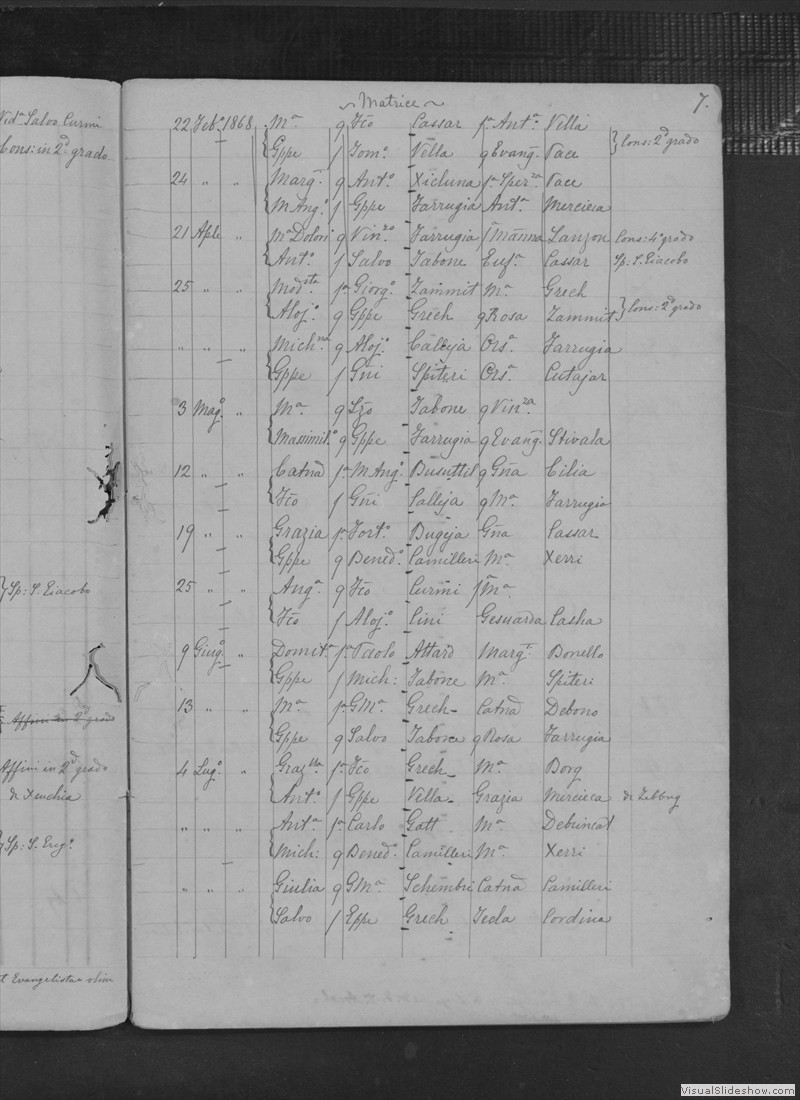 Salvo Curmi
Cons: in 2º grado
} Sp: S. Giacobo
Affini in 2º grado
Affini in 2º grado
di Xeuchia
} Sp: S. Greg.º
Evangelista olim
Matrice
7.
22 Feb.º 1868 Mª q Fcō Cassar fª Antª Vella
Gppe f Tomº Vella q Evang. Pace } Cons: 2º grado
24 " " Marg. q Antº Xicluna fª Sperza Pace
M Angº f Gppe Farrugia Antª Mercieca
21 Aple " Mª Dolori q Vinzo Farrugia Lanzon Cons: 4º grado
Antº f Salvo Tabone Eufª Cassar Sp: S. Giacobo
25 " " Modsta fª Giorgº Zammit Mª Grech
Alojº q Gppe Grech q Rosa Zammit } Cons: 2º grado
" " " Michna q Alojº Calleja Orsª Farrugia
Gppe f Gñi Spiteri Orsª Cutajar
3 Magº " Mª q Lzō Tabone q Vinza
Massimilº q Gppe Farrugia q Evang. Stivala
12 " " Catña fª M Angº Busuttil q Gña Cilia
Fcō f Gñi Calleja q Mª Farrugia
19 " " Grazia fª Fortº Bugeja Gña Cassar
Gppe q Benedº Camilleri Mª Xerri
25 " " Angª q Fcō Curmi fª Mª
Fcō f Alojº Cini Gesuarda Casha
9 Giugº " Domit. fª Paolo Attard Marg. Bonello
Gppe f Mich: Tabone Mª Spiteri
13 " " Mª fª GMª Grech Catña Debono
Gppe q Salvo Tabone q Rosa Farrugia
4 Lugº " Grazlla fª Fcō Grech Mª Borg
Antº f Gppe Vella Grazia Mercieca di Zebbug
" " " Antª fª Carlo Gatt Mª Debuncat
Mich: q Benedº Camilleri Mª Xerri
" " " Giulia q GMª Schembri Catña Camilleri
Salvo f Gppe Grech Tecla Cordina
VisualSlideshow.com